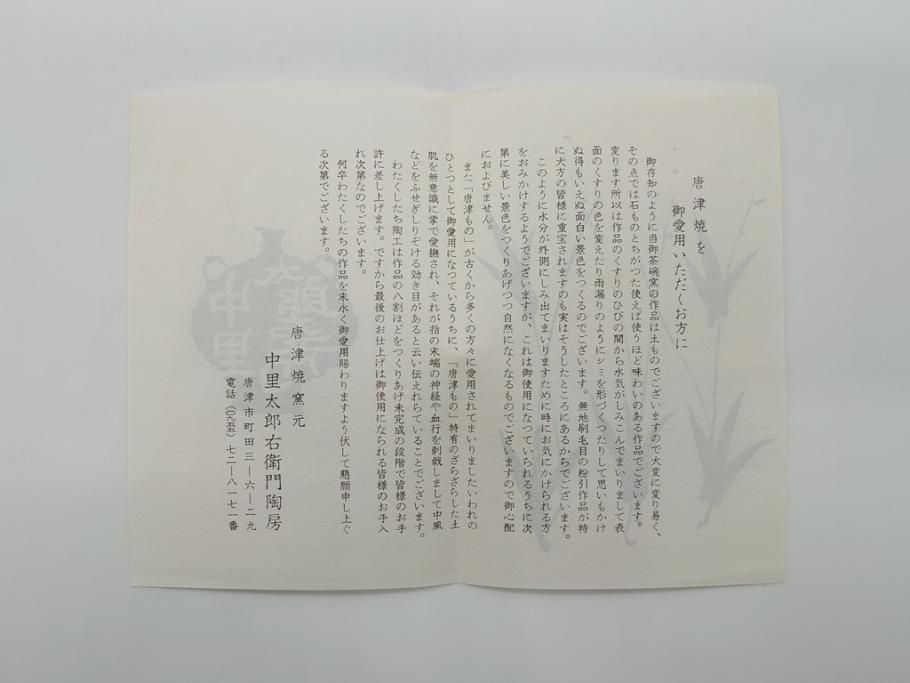 唐津焼を
御愛用いただくお方に
御存知のように当御茶碗窯の作品は土ものでございますので大変に変り易く、
その点では石ものとちがつた使えば使うほど味わいのある作品でございます。
変ります所以は作品のくすりのひびの間から水気がしみこんでまいりまして表
面のくすりの色を変えたり雨漏りのようにシミを形づくつたりして思いもかけ
ぬ得もいえぬ面白い景色をつくるのでございます。無地刷毛目の粉引作品が特
に大方の皆様に重宝されますのも実はそうしたところにあるからでございます。
このように水分が外側にしみ出てまいりますために時にお気にかけられる方
をおみかけするようでございますが、これは御使用になつていられるうちに次
第に美しい景色をつくりあげつつ自然になくなるものでございますので御心配
におよびません。
また「唐津もの」が古くから多くの方々に愛用されてまいりましたいわれの
ひとつとして御愛用になつているうちに、「唐津もの」特有のざらざらした土
肌を無意識に掌で愛撫され、それが指の末端の神経や血行を刺戟しまして中風
などをふせぎしりぞける効き目があると云い伝えれらていることでございます。
わたくしたち陶工は作品の八割ほどをつくりあげ未完成の段階で皆様のお手
許に差し上げます。ですから最後のお仕上げは御使用になられる皆様のお手入
れ次第なのでございます。
何卒わたくしたちの作品を末永く御愛用賜わりますよう伏して懇願申し上ぐ
る次第でございます。
唐津焼窯元
中里太郎右衛門陶房
唐津市町田三―六―二九
電話(〇九五五)七二―八一七一番